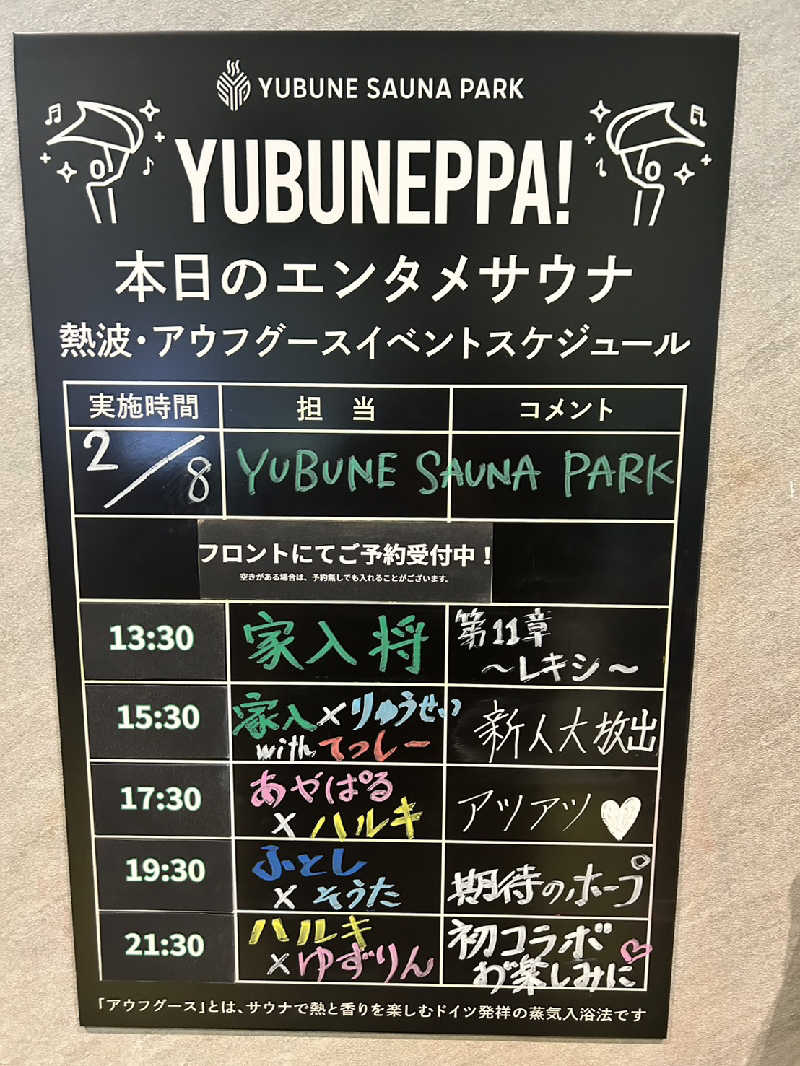 YUBUNE SAUNA PARK
YUBUNEPPA!
本日のエンタメサウナ
熱波・アウフグースイベントスケジュール
実施時間 担当 コメント
2/8 YUBUNE SAUNA PARK
フロントにてご予約受付中!
空きがある場合は、予約無しでも入れることがございます。
13:30 家入将 第11章
~レキシ~
15:30 家入×りゅうせい
with てっしー 新人大放出
17:30 あやぱる
×ハルキ アツアツ♥
19:30 ふとし
×そうた 期待のホープ
21:30 ハルキ
×ゆずりん 初コラボ
お楽しみに♡
「アウフグース」とは、サウナで熱と香りを楽しむドイツ発祥の蒸気入浴法です